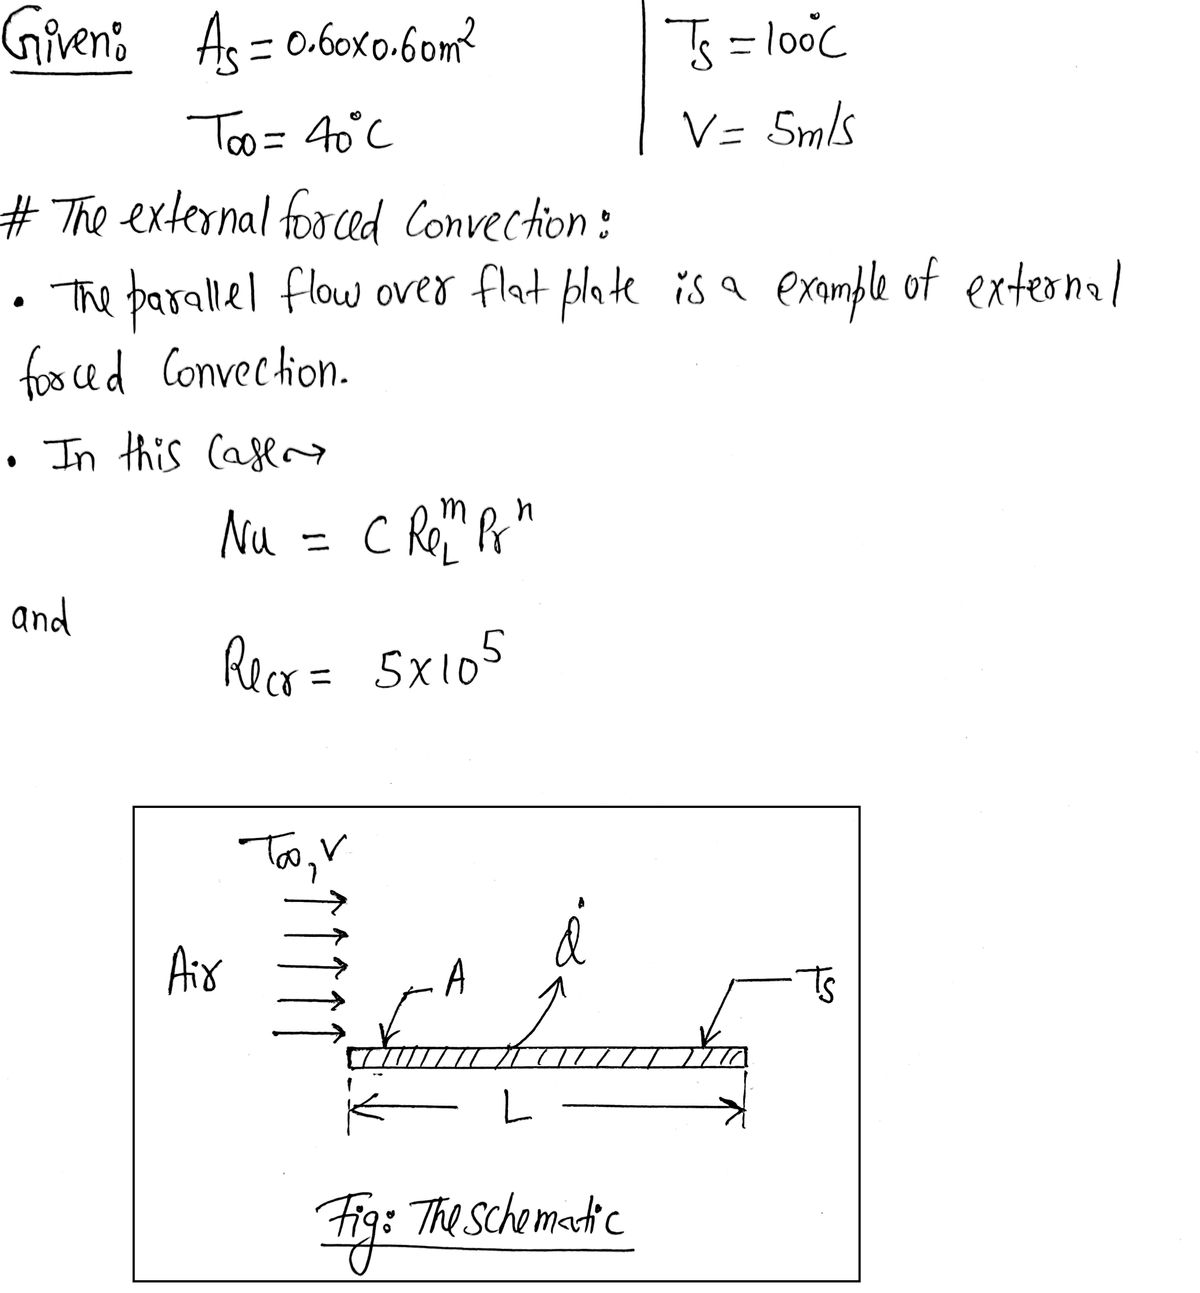 Given: As = 0.60x0.60m² Ts = 100°C
T∞ = 40°C V = 5m/s
# The external forced Convection:
• The parallel flow over flat plate is a example of external
forced Convection.
• In this Case →
Nu = C Re_L^m Pr^n
and
Recr = 5x10⁵
T∞, V
Air
A
Ts
L
Fig: The schematic